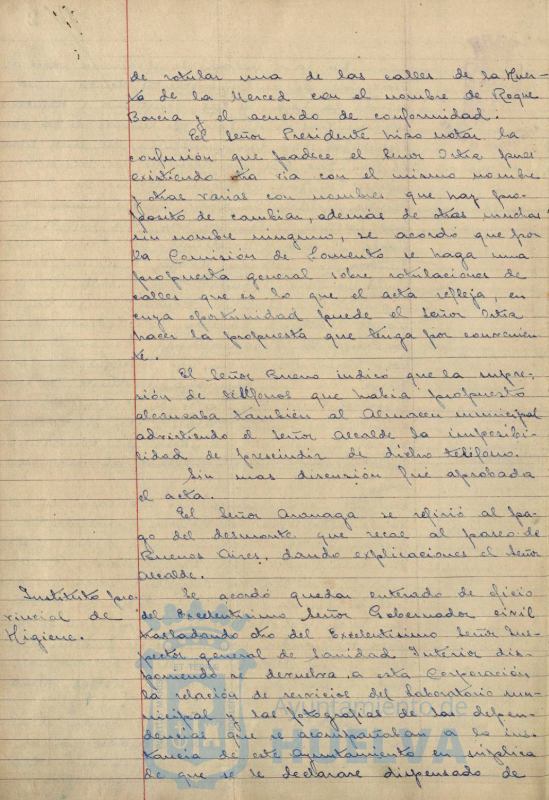 de rotular una de las calles de la Huer-
ta de la Merced con el nombre de Roque
Barcia y el acuerdo de conformidad.
El Señor Presidente hizo notar la
confusión que padece el Señor Oria pues
existiendo otra via con el mismo nombre
y otras varias con nombres que hay pro-
posito de cambiar, además de otras muchas
sin nombre ninguno, se acordó que por
la Comisión de Fomento se haga una
propuesta general sobre rotulaciones de
calles que es lo que el acta refleja, en
cuya oportunidad puede el Señor Oria
hacer la propuesta que tenga por convenien-
te.
El Señor Bueno indicó que la supre-
sión de teléfonos que habia propuesto
alcanzaba también al Almacen municipal
advirtiendo el Señor Alcalde la imposibi-
lidad de prescindir de dicho teléfono.
Sin mas discusión fué aprobada
el acta.
El Señor Aronaga se refirió al pa-
go del desmonte que recae al paseo de
Buenos Aires, dando explicaciones el Señor
Alcalde.
Instituto pro-
vincial de
Higiene.
Se acordó quedar enterado de oficio
del Excelentisimo Señor Gobernador civil
trasladando otro del Excelentisimo Señor Ins-
pector general de Sanidad Interior dis-
poniendo se devuelva a esta Corporación
la relación de servicios del laboratorio mu-
nicipal y las fotografias de las depen-
dencias que se acompañaban a la ins-
tancia de este Ayuntamiento en suplica
de que se le declarase dispensado de
Ayuntamiento de
HUELVA